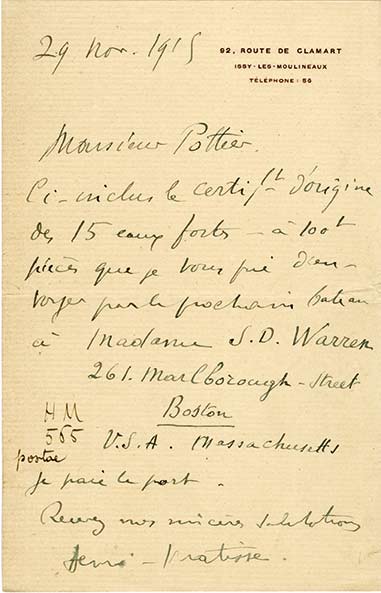 29 Nov. 1915
92, ROUTE DE CLAMART
ISSY-LES-MOULINEAUX
TÉLÉPHONE: 56
Monsieur Pottier.
Ci-inclus le certift d'origine
des 15 eaux fortes - à 100t
pièces que je vous prie d'en-
voyer par le prochain bateau
à Madame S.D. Warren
261. Marlborough-Street
Boston
U.S.A. Massachusetts
HM
555
postae
Je paie le port.
Recevez mes sincères salutations
Henri-Matisse.